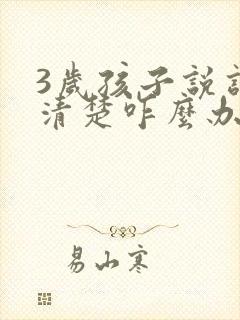 3歲孩子說話
清楚咋麼办
易山寒